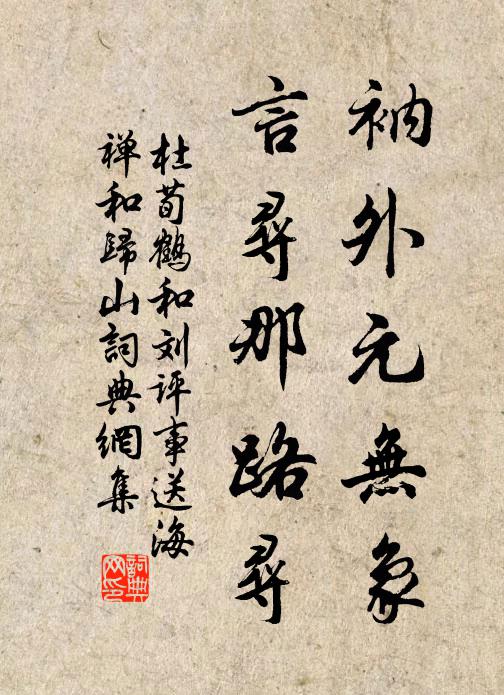 衲外元無象
言尋那路尋
杜荀鶴和刘评事送海
禅和歸山詞典網集
詞典網印